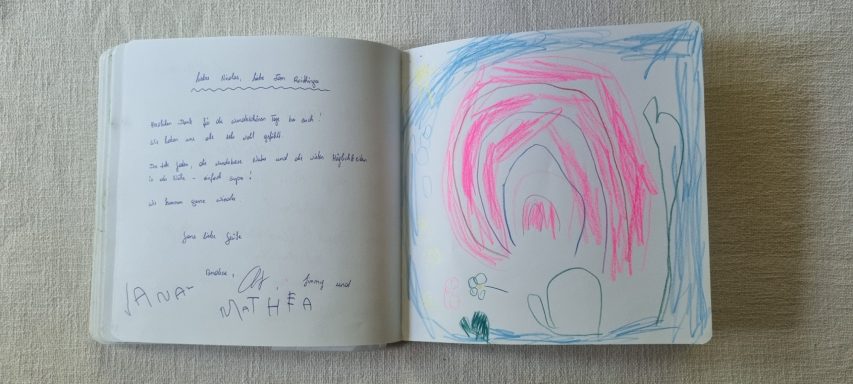 Liebe Nicole, liebe Fam
Herzlichen Dank für die wunderschönen Tage bei euch!
Wir haben uns alle sehr wohl gefühlt.
Der tolle Garten, die wunderbare Natur und die vielen Möglichkeiten
in der Nähe - einfach super!
Wir kommen gerne wieder.
Ganz liebe Grüße
Andrea, und
JANA
MATHEA